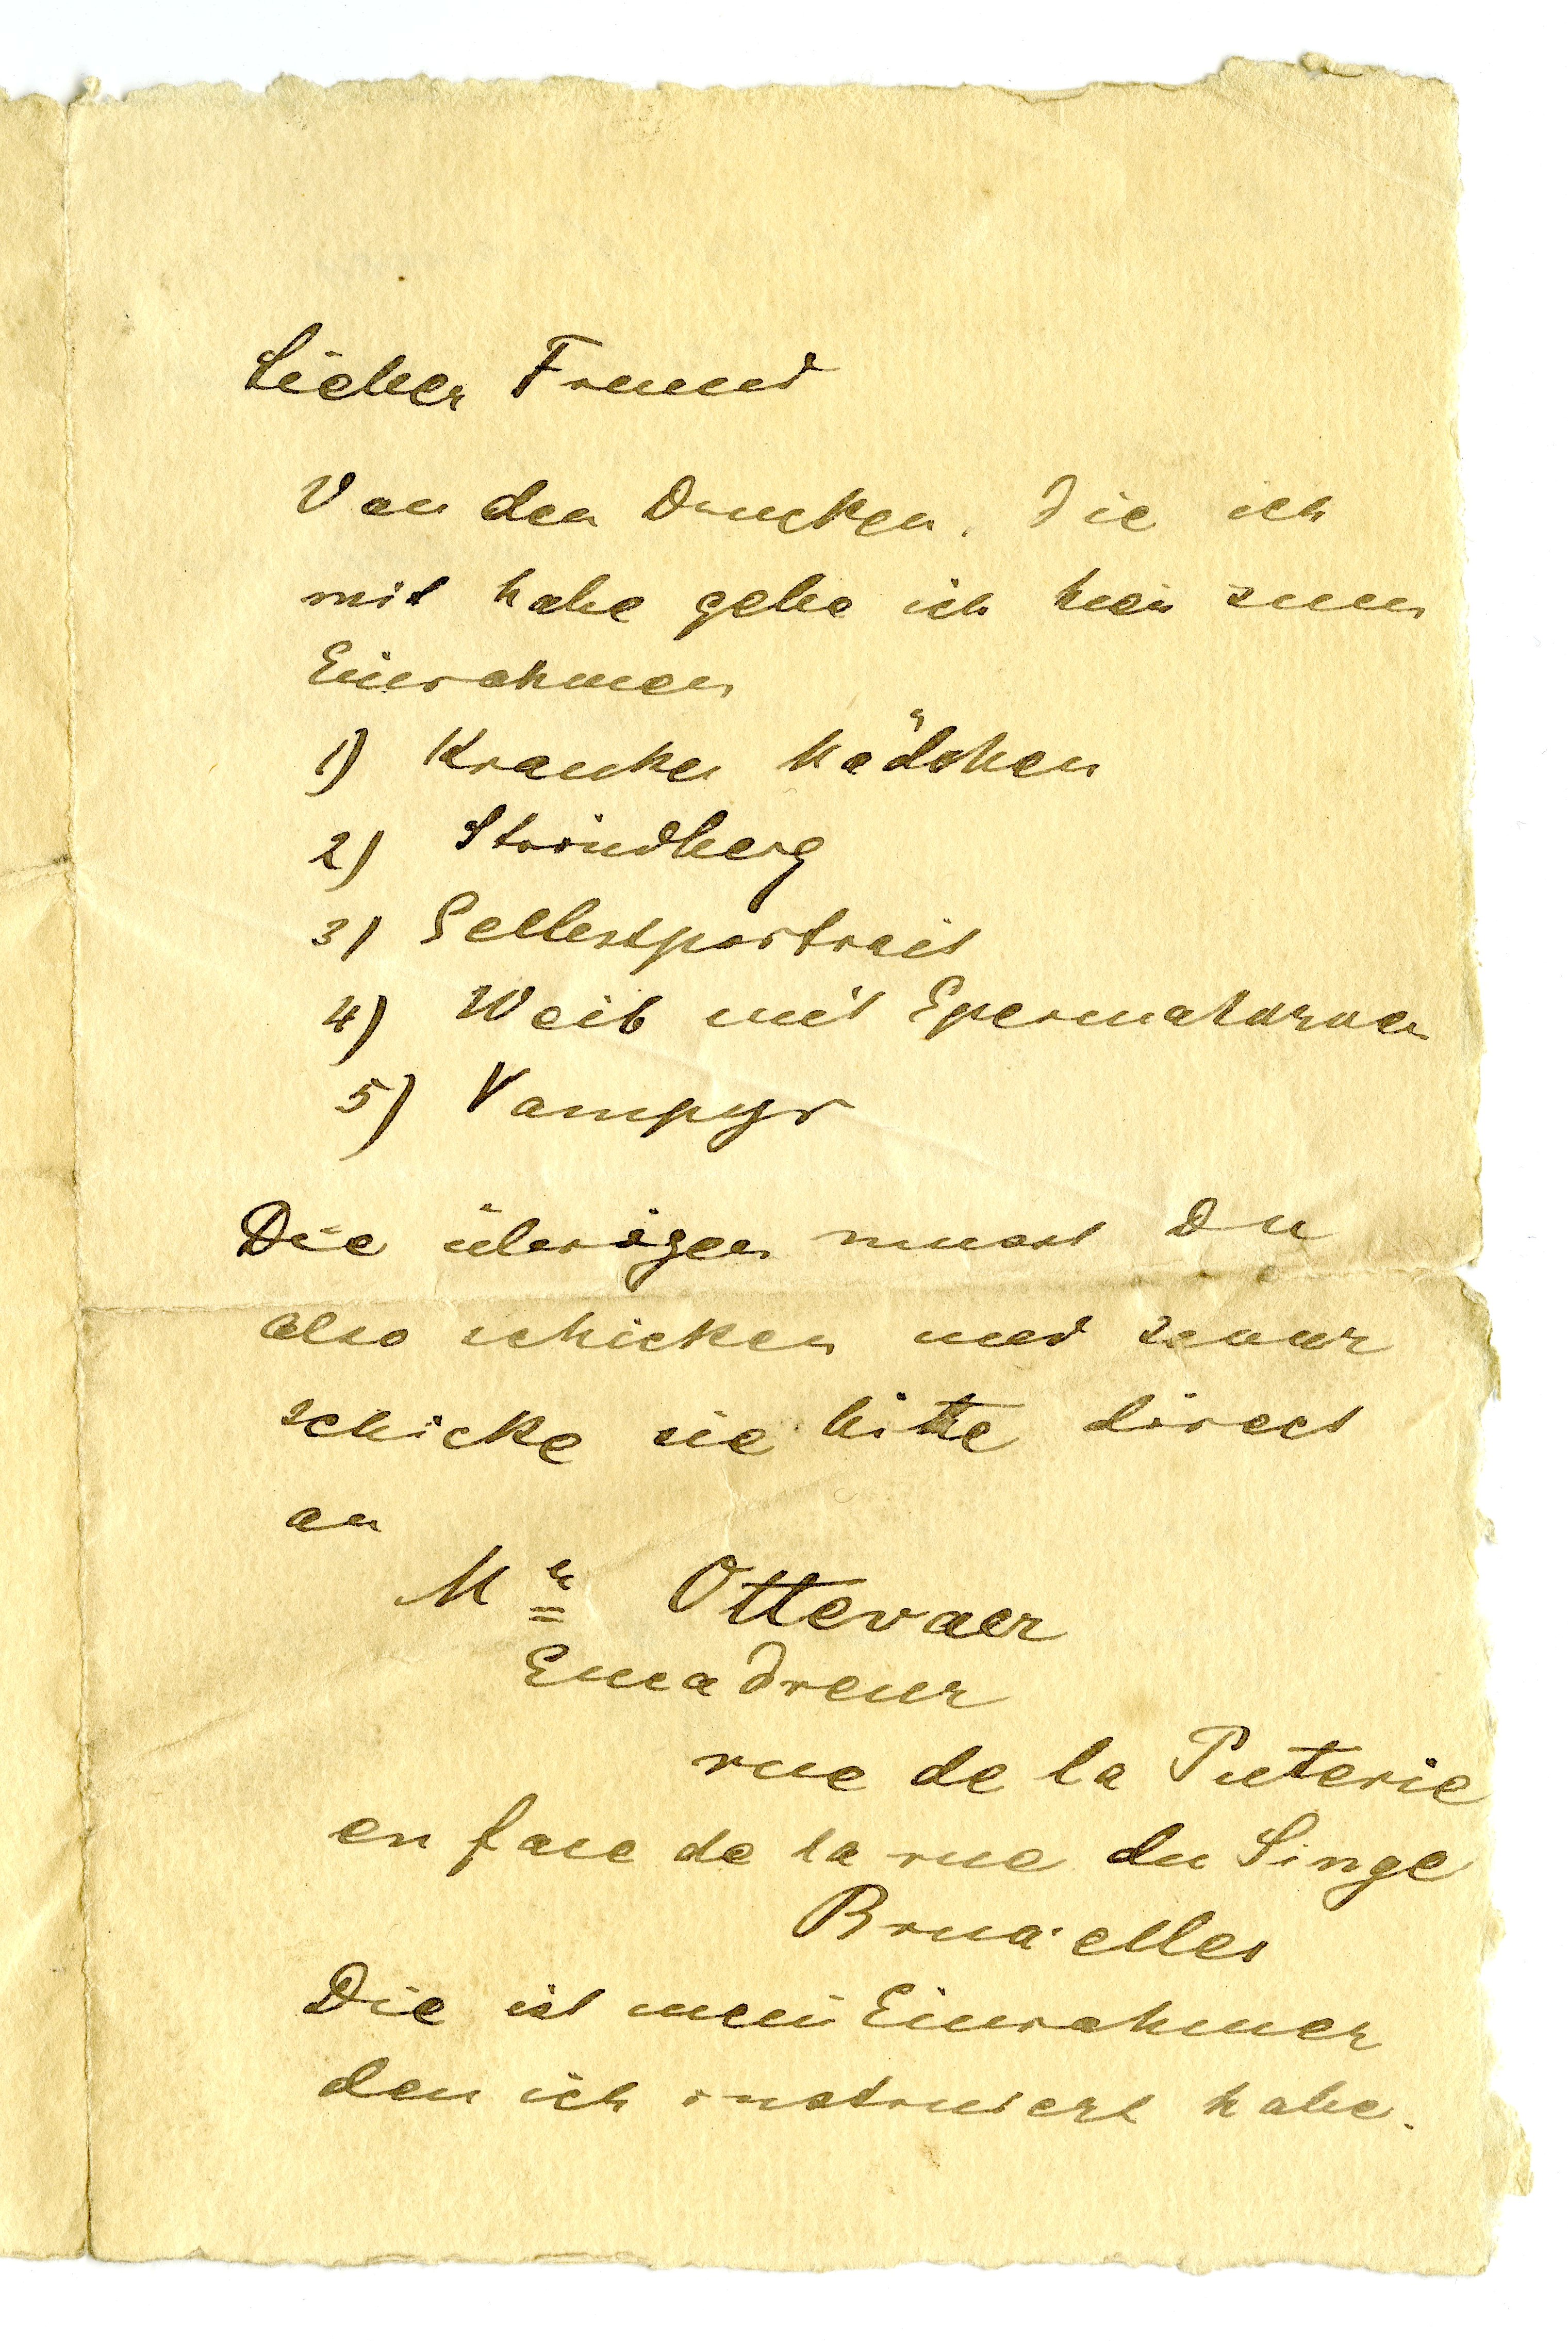 Lieber Freund
Von den Drucken. Die ich
mit habe gebe ich hier zum
Einrahmen
1) Kranker Mädchen
2) Strindberg
3) Selbstportrait
4) Weib mit Spermatorven
5) Vampyr
Die übrigen musst Du
also schicken und zwar
schicke sie bitte direct
an
Mr Ottevaer
Encadreur
rue de la Puterie
en face de la rue du Singe
Bruxelles
Die ist mein Einrahmer
den ich instruiert habe.